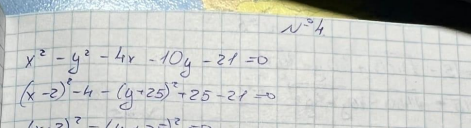 №4
x² - y² - 4x - 10y - 21 = 0
(x-2)² - 4 - (y+25)² + 25 - 21 = 0